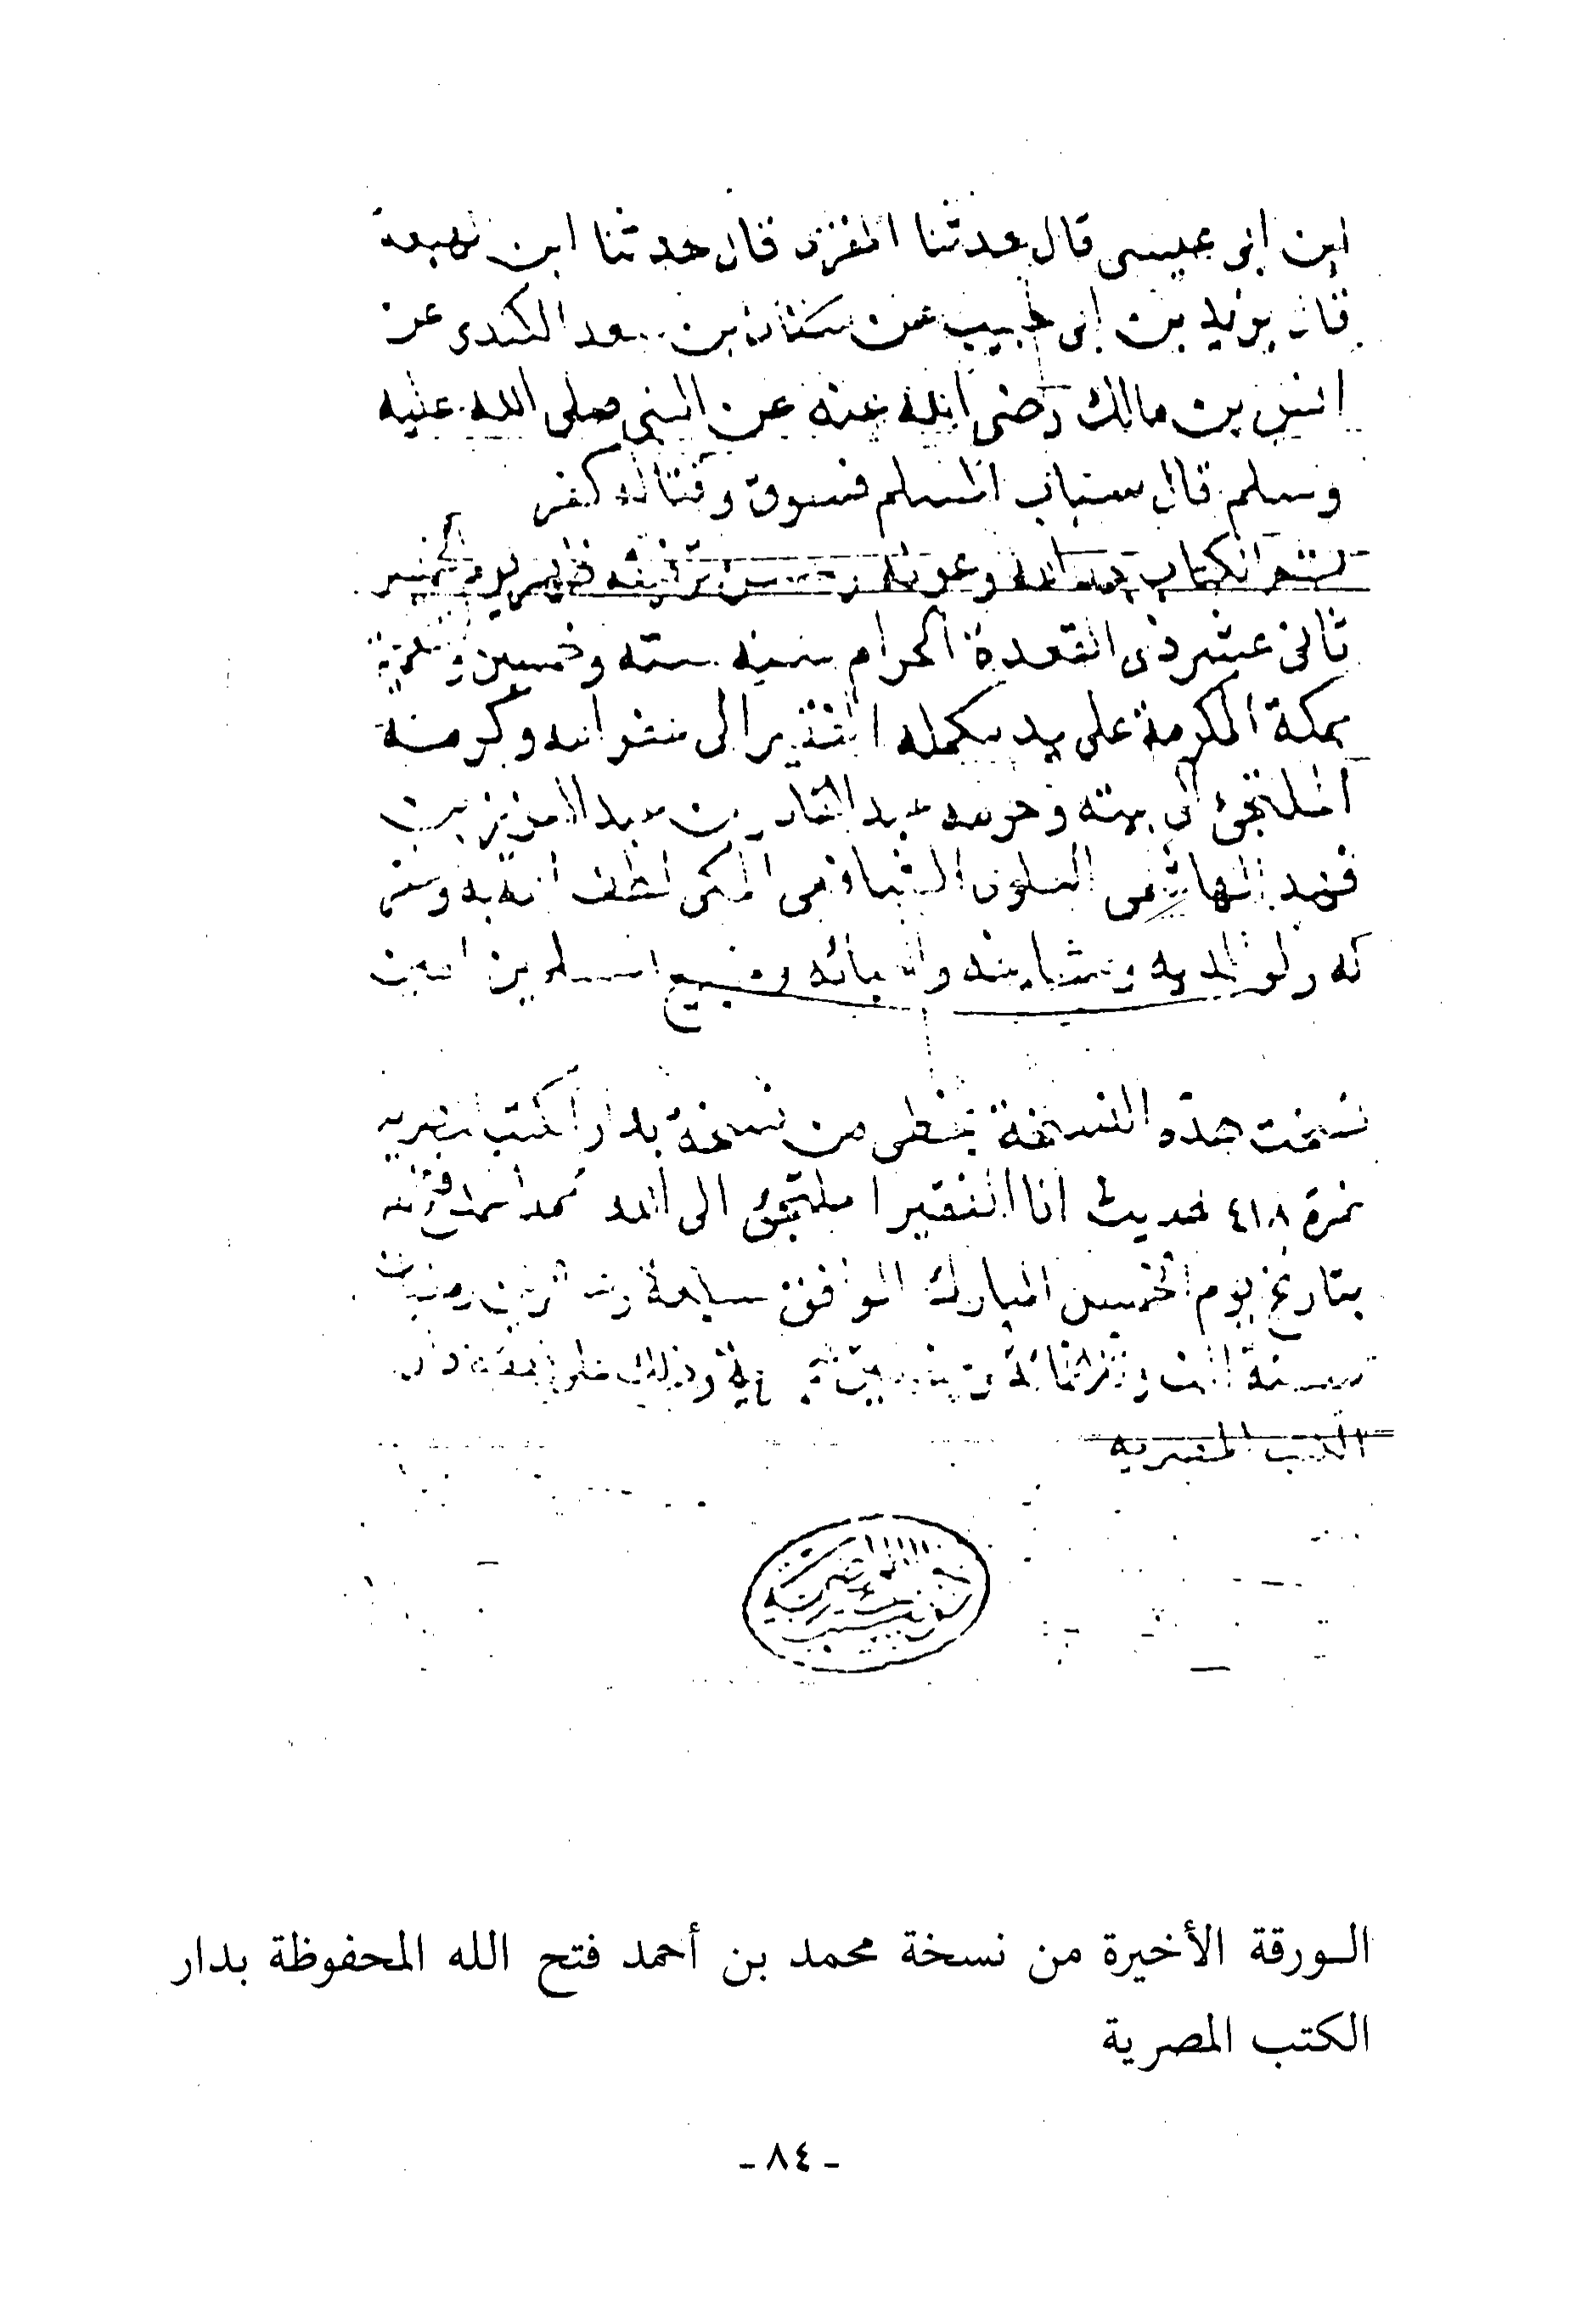 ابن ابى عيسى قال حدثنا المقرى قال حدثنا ابن لهيعة
قال يزيد بن ابى حبيب عن سنان بن سعد الكندى عن
انس بن مالك رضى الله عنه عن النبى صلى الله عليه
وسلم قال سباب المسلم فسوق وقتاله كفر
تم الكتاب بحمد الله وعونه وحسن توفيقه يوم الخميس
ثانى عشر ذى القعدة الحرام سنة ستة وخمسين
بمكة المكرمة على يد مكمله الفقير الى عفو الله وكرمه
الملتجئ الى بيته وحرمه عبد القادر بن عبد العزيز بن
فهد الهاشمى العلوى الشافعى المكى لطف الله به وغفر
له ولوالديه ومشايخه واحبائه وجميع المسلمين امين
نسخت هذه النسخة بخطى من نسخة بدار الكتب المصرية
نمرة ٤١٨ حديث انا الفقير الملتجئ الى الله محمد احمد فتح الله
بتاريخ يوم الخميس المبارك الموافق سابعة وعشرين رمضان
سنة الف وثلاثمائة هجرية وذلك على نفقة دار
الكتب المصريه
الـورقة الأخيرة من نسخة محمد بن أحمد فتح الله المحفوظة بدار
الكتب المصرية
- ٨٤ -